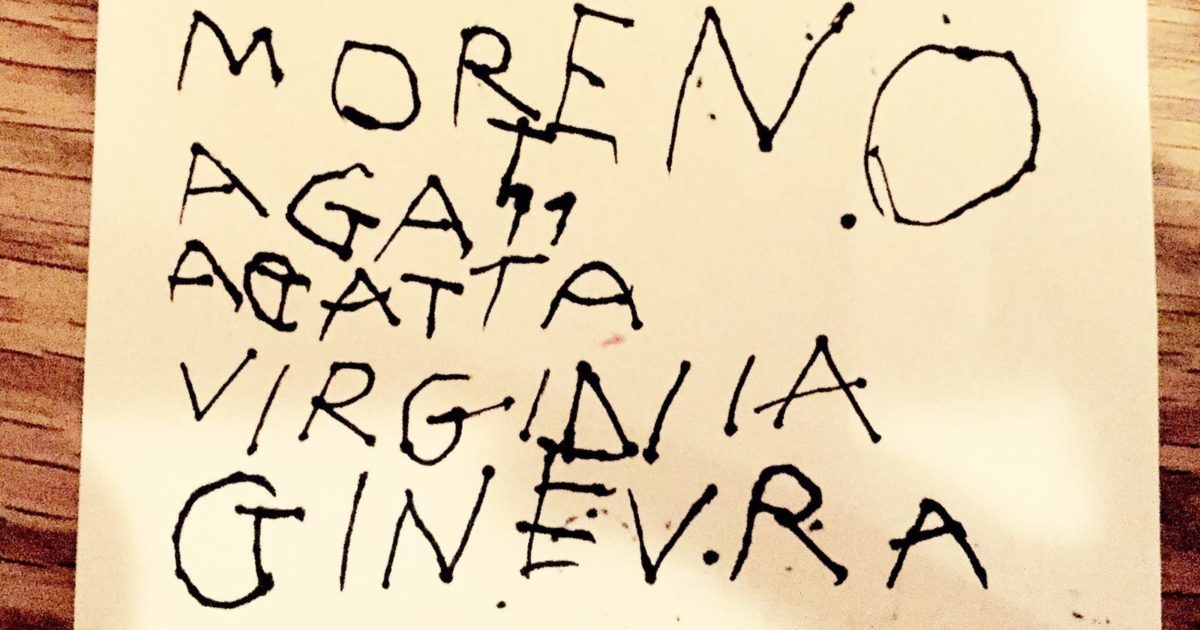 MORENO
AGAT
AGATTA
VIRGINIA
GINEVRA